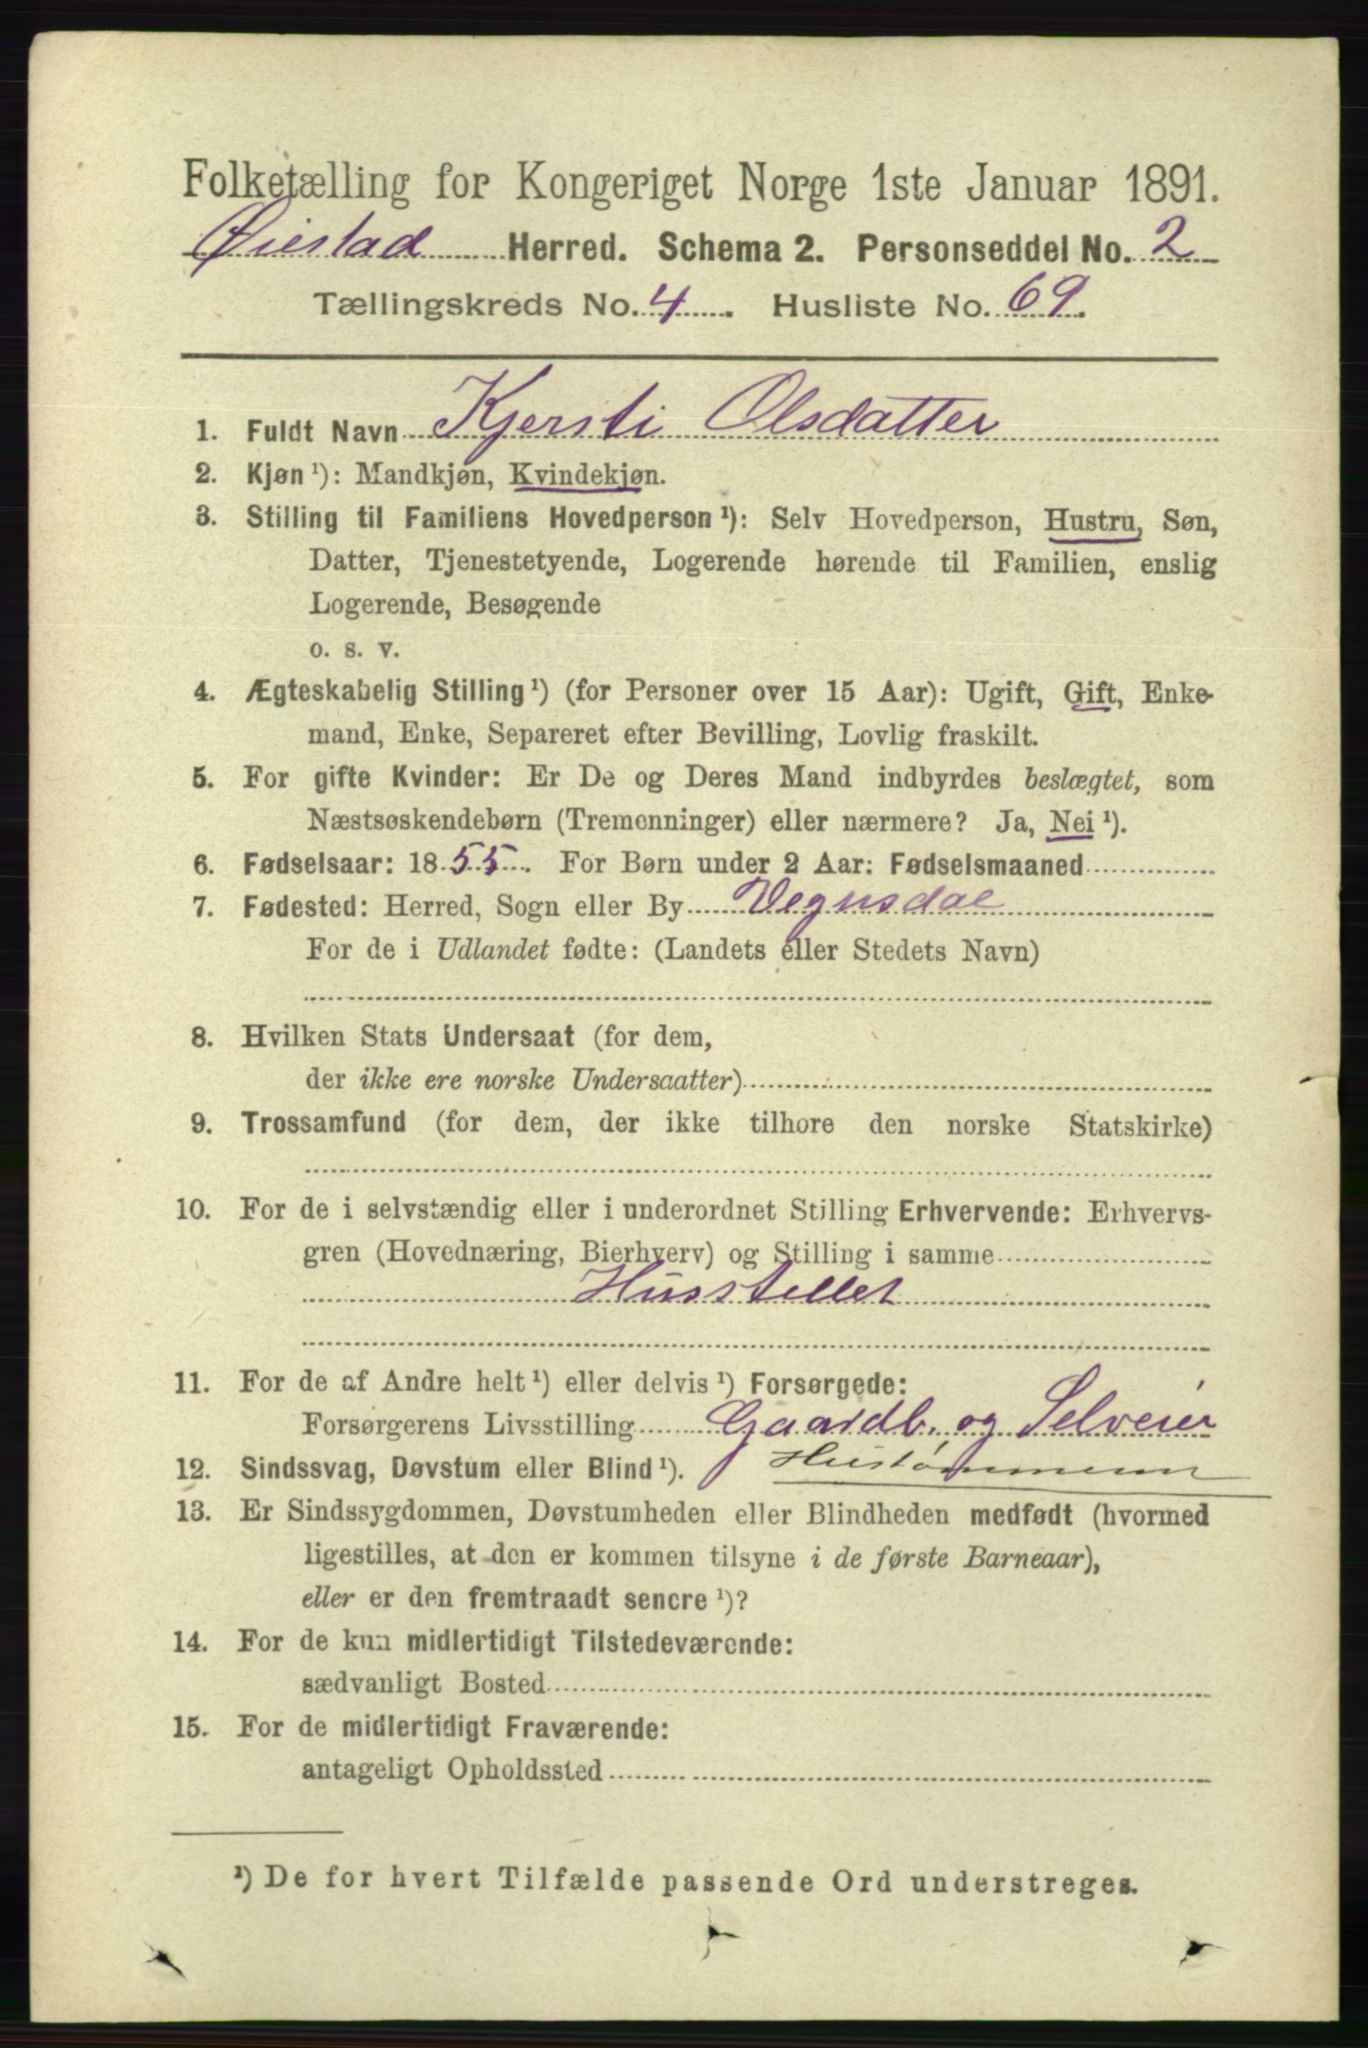 Folketælling for Kongeriget Norge 1ste Januar 1891.
Øiestad Herred. Schema 2. Personseddel No. 2
Tællingskreds No. 4. Husliste No. 69.
1. Fuldt Navn Kjersti Olsdatter
2. Kjøn ¹): Mandkjøn, Kvindekjøn.
3. Stilling til Familiens Hovedperson ¹): Selv Hovedperson, Hustru, Søn,
Datter, Tjenestetyende, Logerende hørende til Familien, enslig
Logerende, Besøgende
o. s. v.
4. Ægteskabelig Stilling ¹) (for Personer over 15 Aar): Ugift, Gift, Enke-
mand, Enke, Separeret efter Bevilling, Lovlig fraskilt.
5. For gifte Kvinder: Er De og Deres Mand indbyrdes beslægtet, som
Næstsøskendebørn (Tremenninger) eller nærmere? Ja, Nei ¹).
6. Fødselsaar: 1855. For Børn under 2 Aar: Fødselsmaaned
7. Fødested: Herred, Sogn eller By Vegusdal
For de i Udlandet fødte: (Landets eller Stedets Navn)
8. Hvilken Stats Undersaat (for dem,
der ikke ere norske Undersaatter)
9. Trossamfund (for dem, der ikke tilhore den norske Statskirke)
10. For de i selvstændig eller i underordnet Stilling Erhvervende: Erhvervs-
gren (Hovednæring, Bierhverv) og Stilling i samme
Husstellet
11. For de af Andre helt ¹) eller delvis ¹) Forsørgede:
Forsørgerens Livsstilling Gaardb. og Selveier
12. Sindssvag, Døvstum eller Blind ¹). Hustømmerm
13. Er Sindssygdommen, Døvstumheden eller Blindheden medfødt (hvormed
ligestilles, at den er kommen tilsyne i de første Barneaar),
eller er den fremtraadt senere ¹)?
14. For de kun midlertidigt Tilstedeværende:
sædvanligt Bosted
15. For de midlertidigt Fraværende:
antageligt Opholdssted
¹) De for hvert Tilfælde passende Ord understreges.